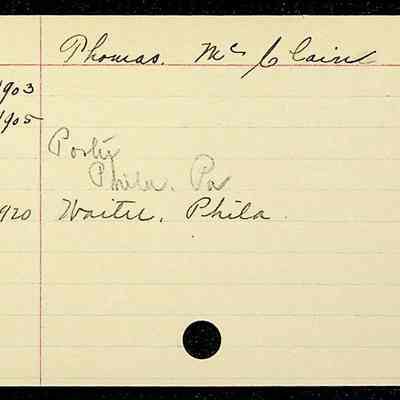 Thomas. Mc Clain
1903
1905
Phila. Pa
1920 Waiter, Phila.